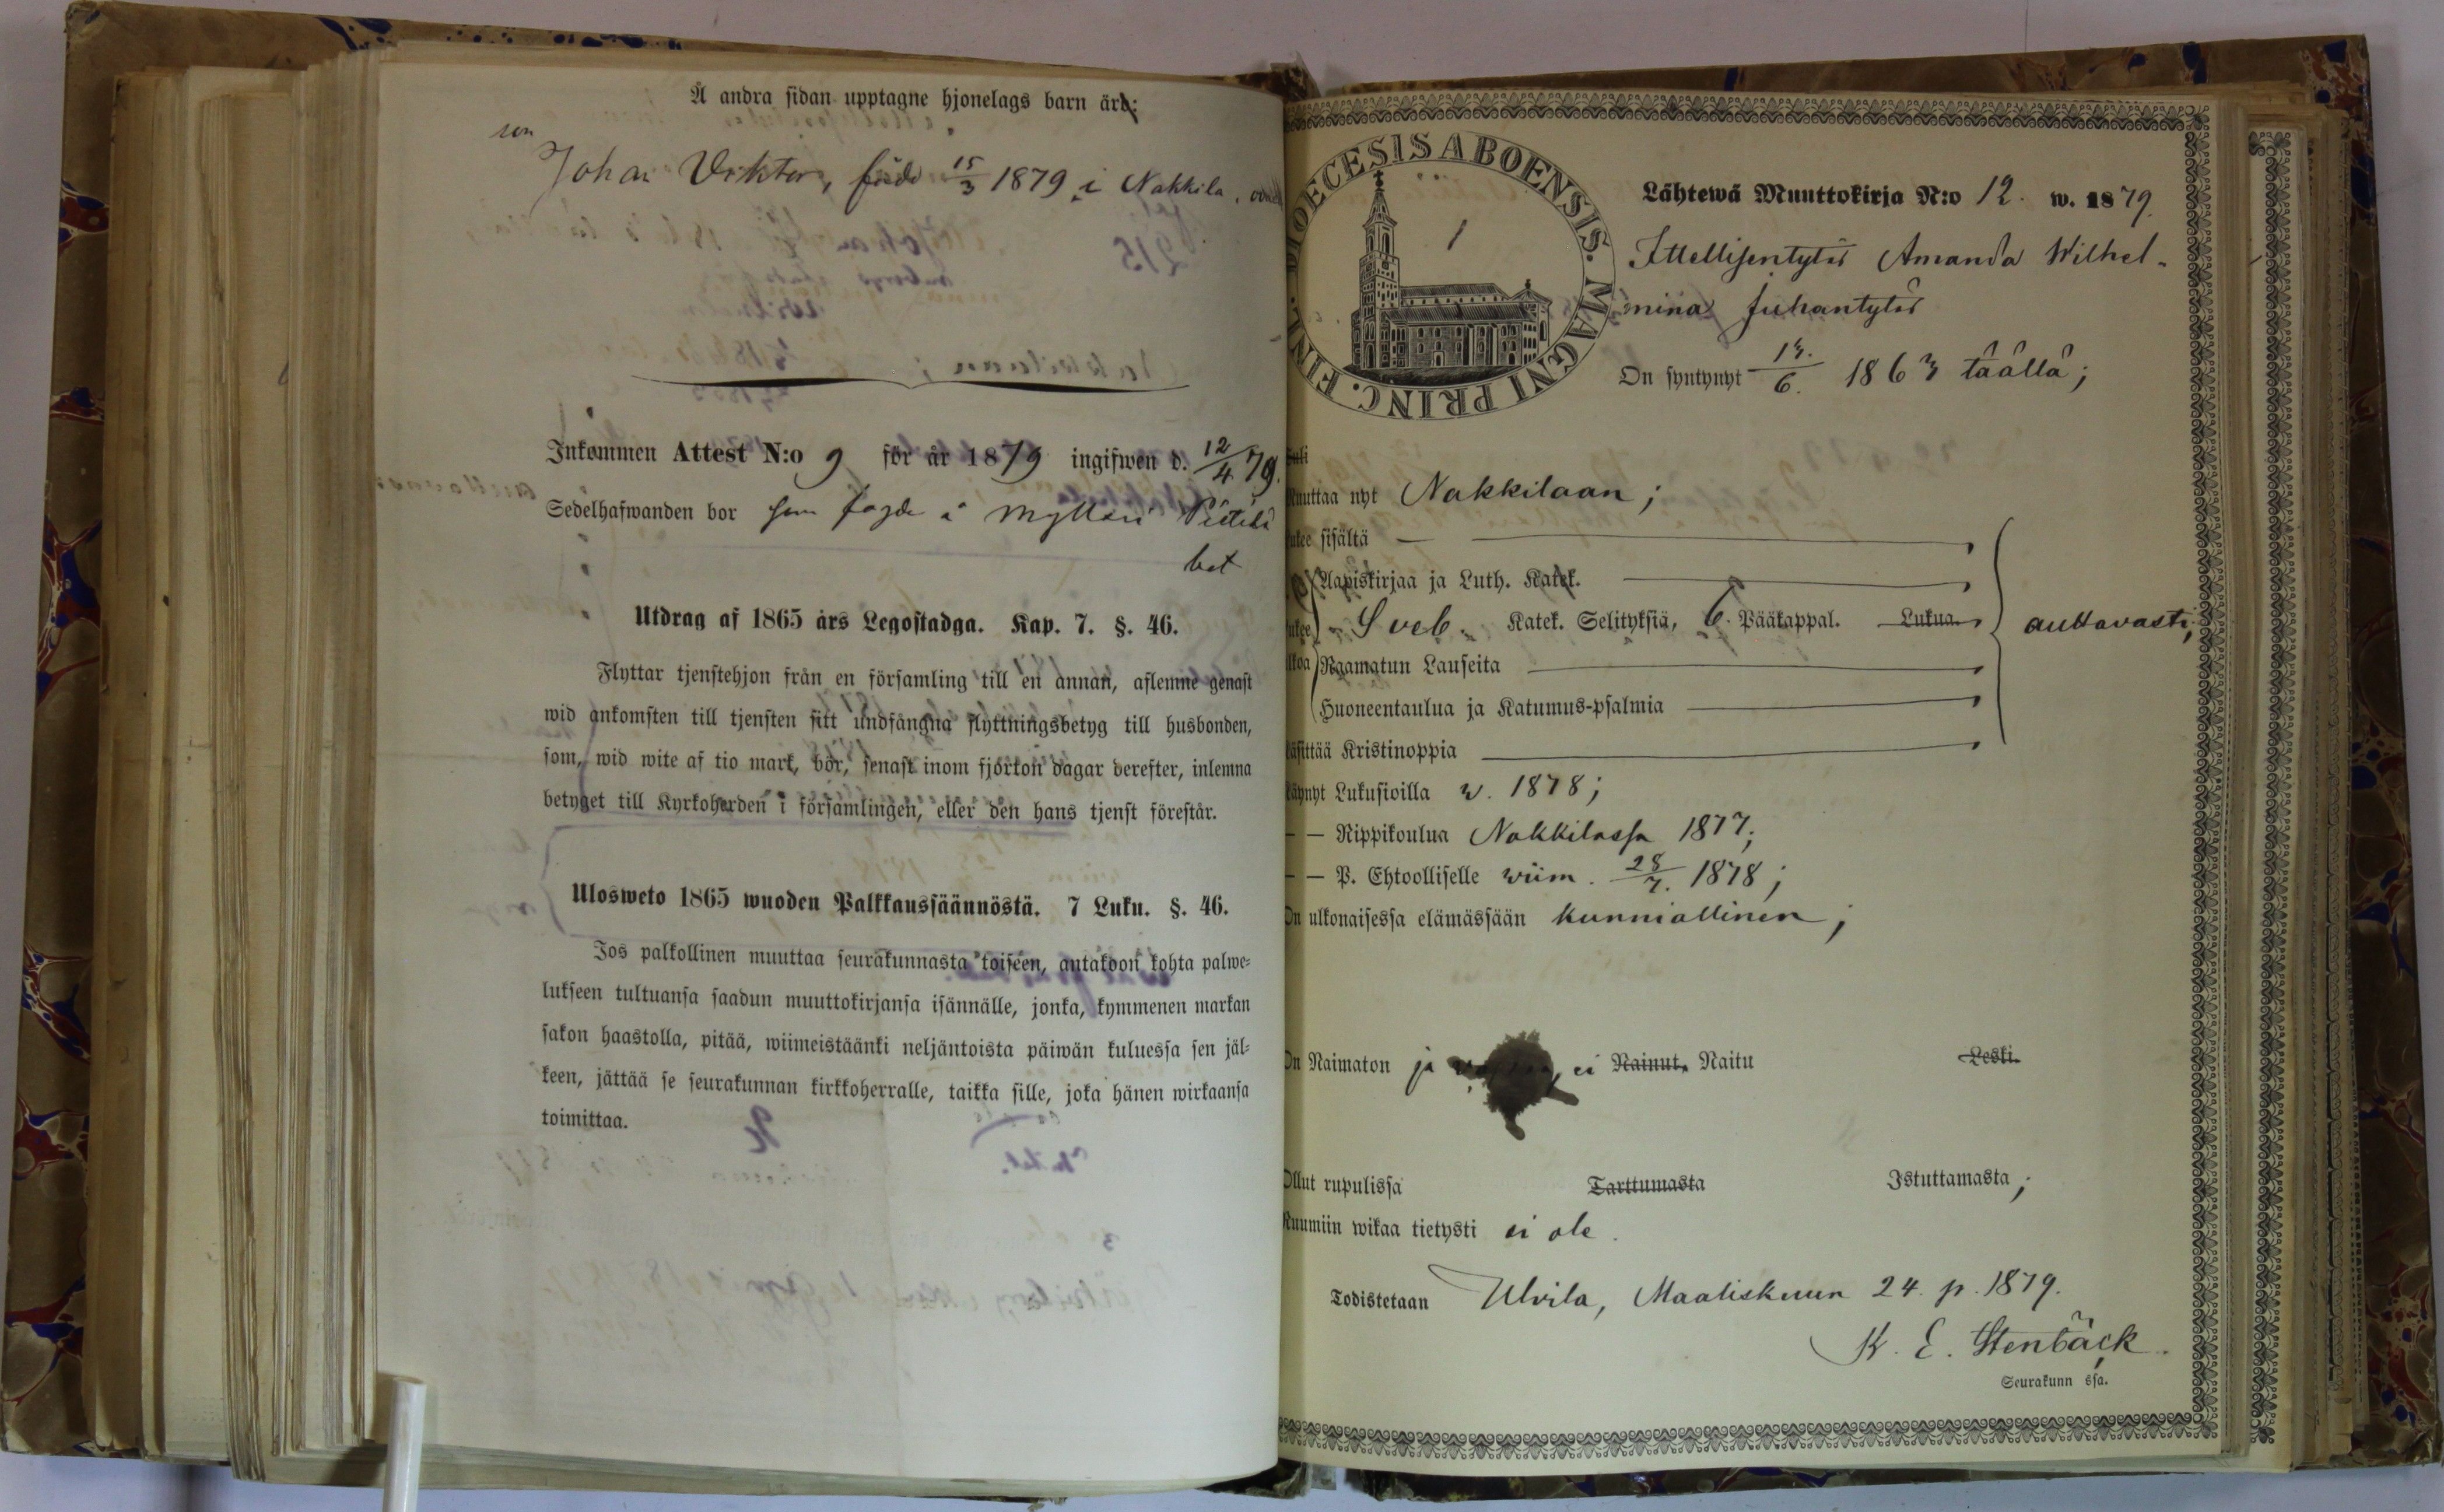 Å andra sidan upptagne hjonelags barn äro:
son
Johan Viktor, född 15/3 1879 i Nakkila,
Inkommen Attest N:o 9 för år 1879 ingifwen d. 12/4 79.
Sedelhafwanden bor på Mylläri
bst
Utdrag af 1865 års Legostadga. Kap. 7. §. 46.
Flyttar tjenstehjon från en församling till en annan, aflemne genast
wid ankomsten till tjensten sitt undfångna flyttningsbetyg till husbonden,
som, wid wite af tio mark, bör, senast inom fjorton dagar derefter, inlemna
betyget till Kyrkoherden i församlingen, eller den hans tjenst förestår.
Ulosweto 1865 wuoden Palkkaussäännöstä. 7 Luku. §. 46.
Jos palkollinen muuttaa seurakunnasta toiseen, antakoon kohta palwe-
lukseen tultuansa saadun muuttokirjansa isännälle, jonka, kymmenen markan
sakon haastolla, pitää, wiimeistäänki neljäntoista päiwän kuluessa sen jäl-
keen, jättää se seurakunnan kirkkoherralle, taikka sille, joka hänen wirkaansa
toimittaa.
DIOECESIS ABOENSIS. MAGNI PRINC. FINL.
1
Lähtewä Muuttokirja N:o 12. w. 1879.
Ittellisentytär Amanda Wilhel-
mina Juhantytär
On syntynyt 13./6. 1863 täällä;
Muuttaa nyt Nakkilaan;
Lukee sisältä
Aapiskirjaa ja Luth. Katek.
Sveb. Katek. Selityksiä, 6. Pääkappal. Lukua. auttavasti;
Raamatun Lauseita
Huoneentaulua ja Katumus-psalmia
Käsittää Kristinoppia
Käynyt Lukusioilla w. 1878;
— — Rippikoulua Nakkilassa 1877;
— — P. Ehtoolliselle wiim. 28/7. 1878;
On ulkonaisessa elämässään kunniallinen;
On Naimaton ja ei Nainut, Naitu Leski.
Ollut rupulissa Tarttumasta Istuttamasta;
Ruumiin wikaa tietysti ei ole.
Todistetaan Ulvila, Maaliskuun 24. p. 1879.
K. E. Stenbäck.
Seurakunn ssa.